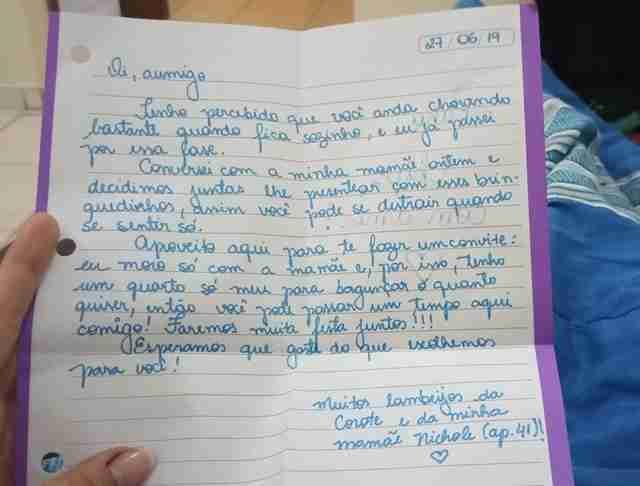 27/06/19
Oi, aumigo
Tenho percebido que você anda chorando
bastante quando fica sozinho, e eu já passei
por essa fase.
Conversei com a minha mamãe ontem e
decidimos juntas lhe presentear com esses brin-
quedinhos, assim você pode se distrair quando
se sentir só.
Aproveito aqui para te fazer um convite:
eu moro só com a mamãe e, por isso, tenho
um quarto só meu para bagunçar o quanto
quiser, então você pode passar um tempo aqui
comigo! Faremos muita festa juntos!!!
Esperamos que goste do que escolhemos
para você!
Muitos lambeijos da
e da minha
mamãe Nichole (ap. 41)!